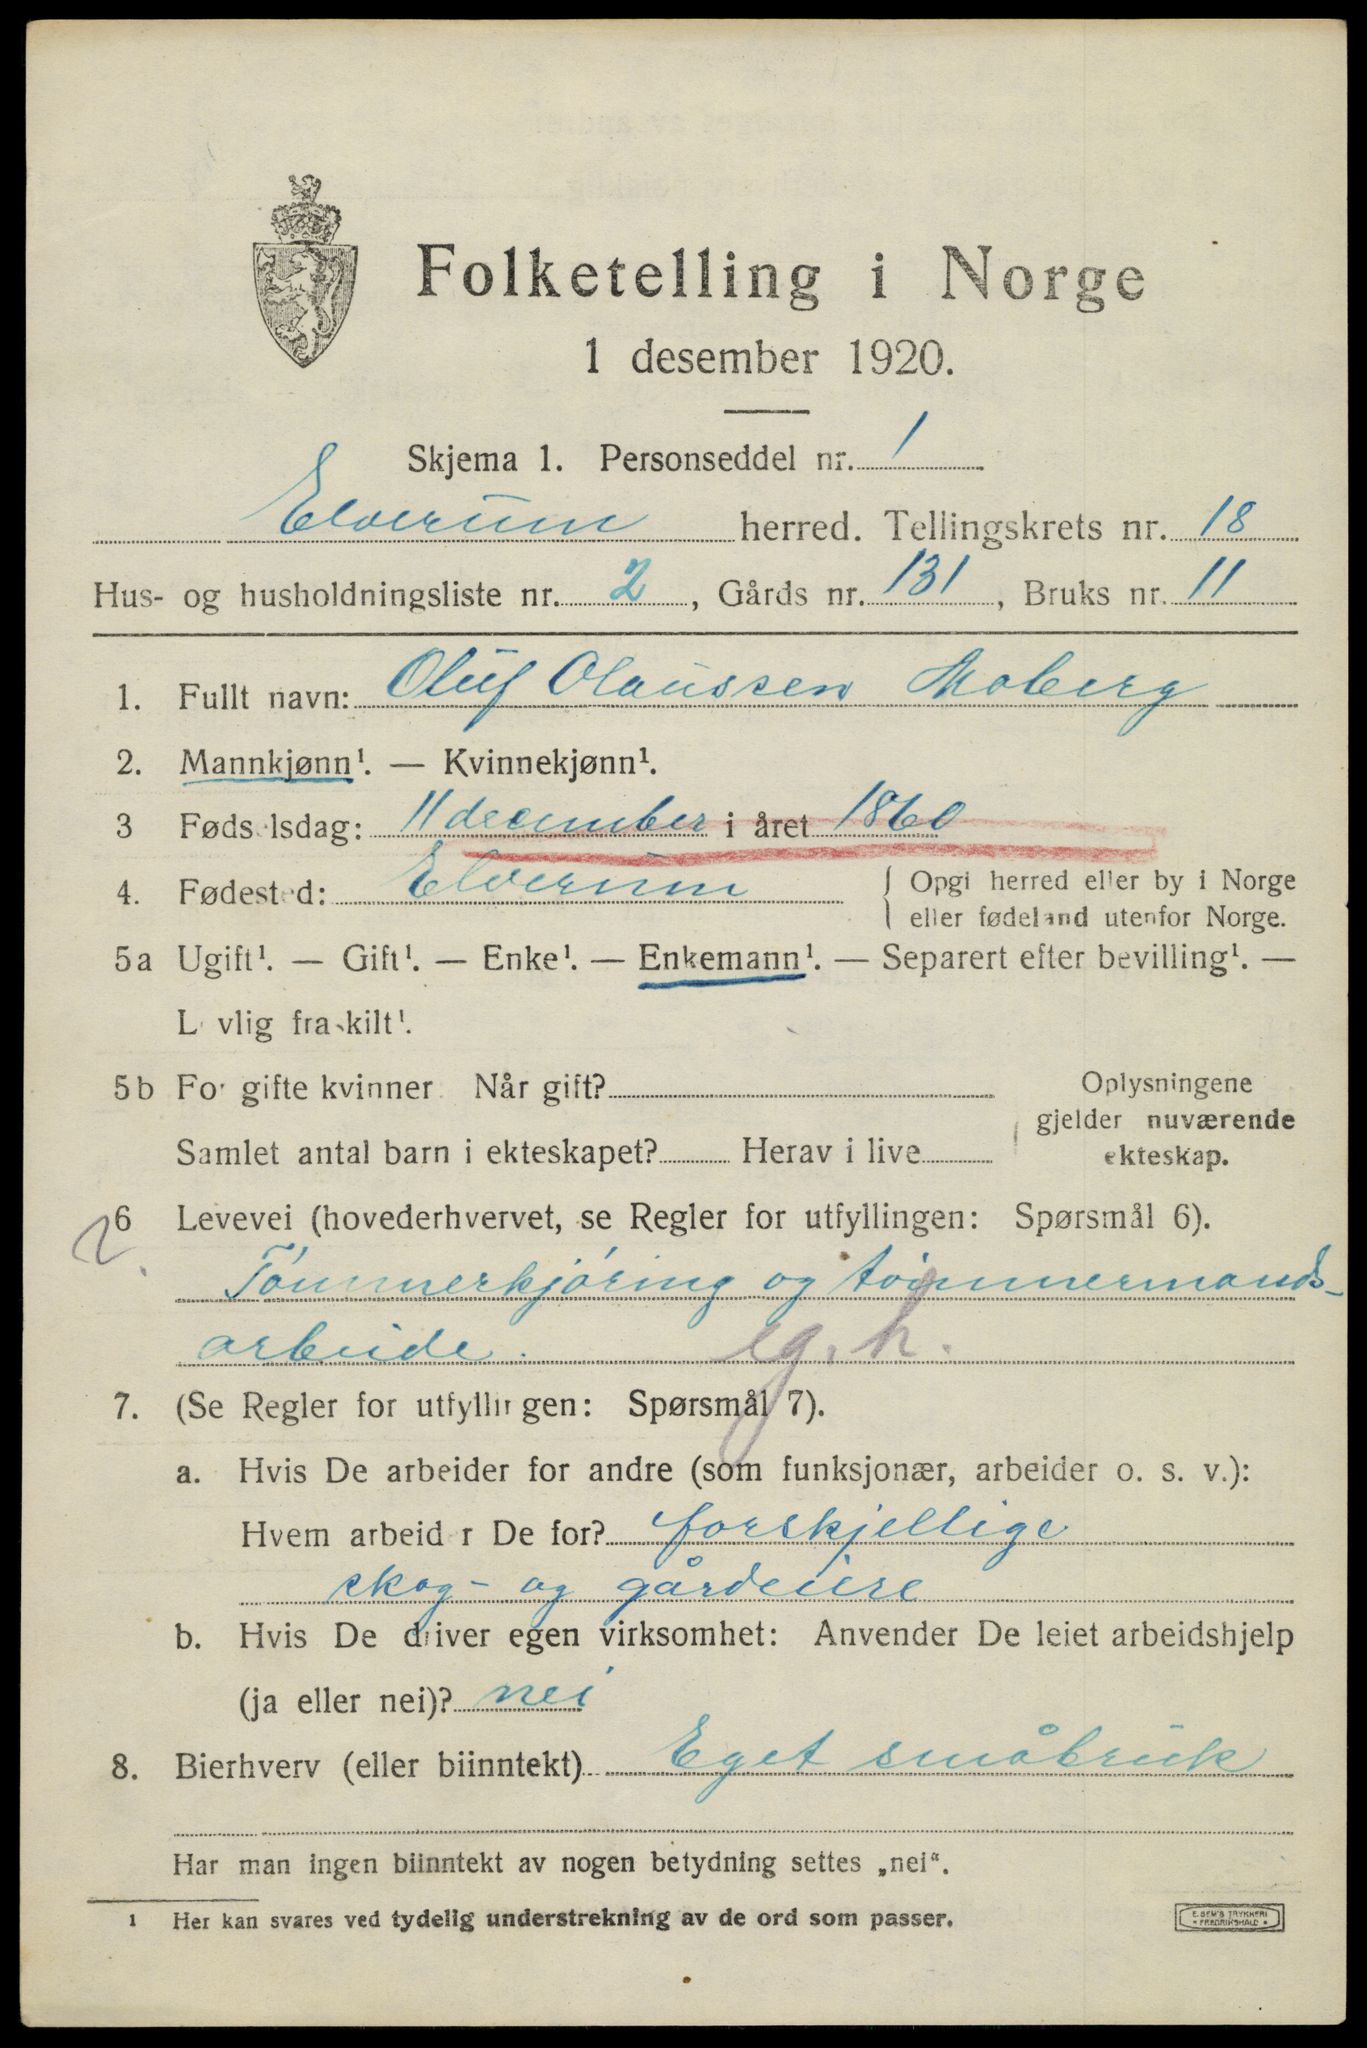 Folketelling i Norge
1 desember 1920.
Skjema 1. Personseddel nr. 1
Elverum herred. Tellingskrets nr. 18
Hus- og husholdningsliste nr. 2, Gårds nr. 131, Bruks nr. 11
1. Fullt navn: Oluf Olaussen Moberg
2. Mannkjønn¹. — Kvinnekjønn¹.
3 Fødselsdag: 11 december i året 1860
4. Fødested: Elverum { Opgi herred eller by i Norge
eller fødeland utenfor Norge.
5a Ugift¹. — Gift¹. — Enke¹. — Enkemann¹. — Separert efter bevilling¹. —
Lovlig fraskilt¹.
5b For gifte kvinner Når gift? Oplysningene
gjelder nuværende
Samlet antal barn i ekteskapet? Herav i live ekteskap.
2. 6 Levevei (hovederhvervet, se Regler for utfyllingen: Spørsmål 6).
Tømmerkjøring og tømmermands-
arbeide. eg. h.
7. (Se Regler for utfyllingen: Spørsmål 7).
a. Hvis De arbeider for andre (som funksjonær, arbeider o. s. v.):
Hvem arbeider De for? forskjellige
skog- og gårdeiere
b. Hvis De driver egen virksomhet: Anvender De leiet arbeidshjelp
(ja eller nei)? nei
8. Bierhverv (eller biinntekt) Eget småbruk
Har man ingen biinntekt av nogen betydning settes „nei“.
1 Her kan svares ved tydelig understrekning av de ord som passer.
E. SEM'S TRYKKERI
• FREDRIKSHALD •